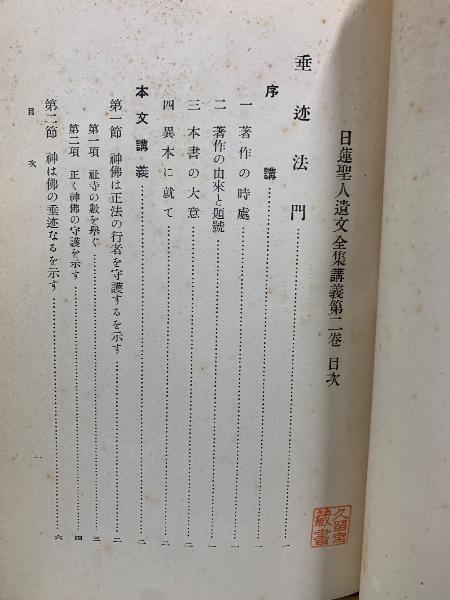 日蓮聖人遺文全集講義第二卷 目次
垂迹法門……一
序講……一
一 著作の時處……一
二 著作の由來と題號……一
三 本書の大意……二
四 異本に就て……二
本文講義……二
第一節 神佛は正法の行者を守護するを示す……二
第一項 社寺の數を擧ぐ……三
第二項 正く神佛の守護を示す……四
第二節 神は佛の垂迹なるを示す……六
目次 一
久留宮藏書